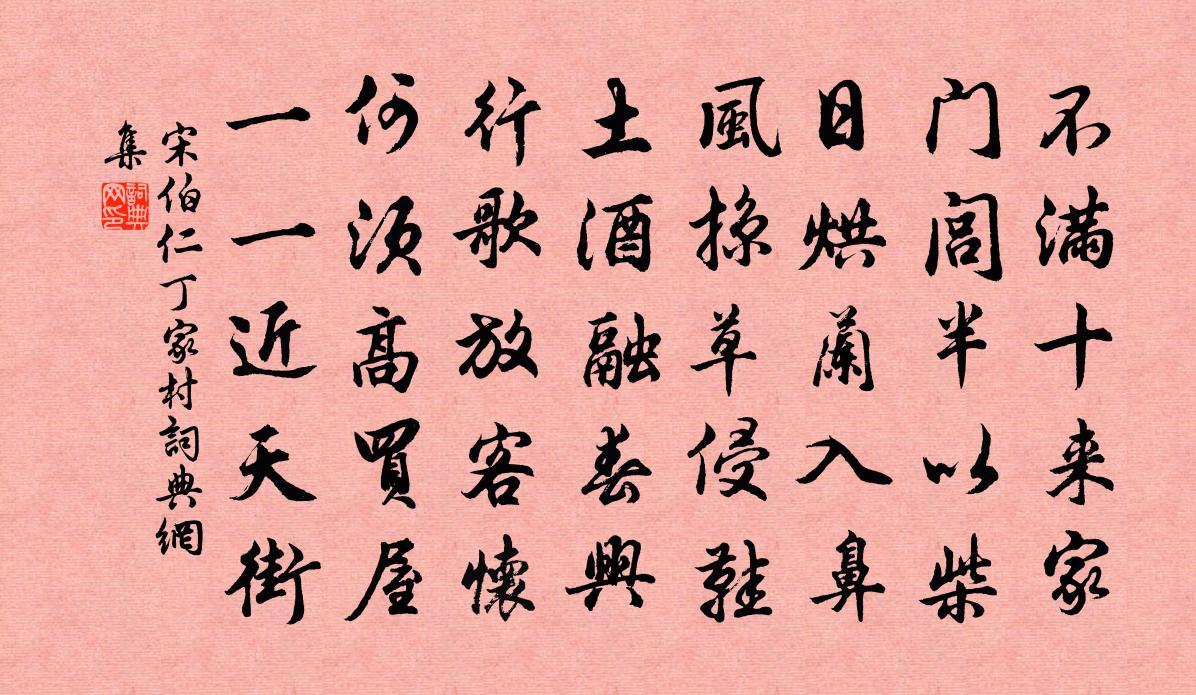 不滿十来家
门闾半以柴
日烘蘭入鼻
風掠草侵鞋
土酒融春興
行歌放客懷
何须高買屋
一一近天街
宋伯仁丁家村詞典網
集
詞典网印